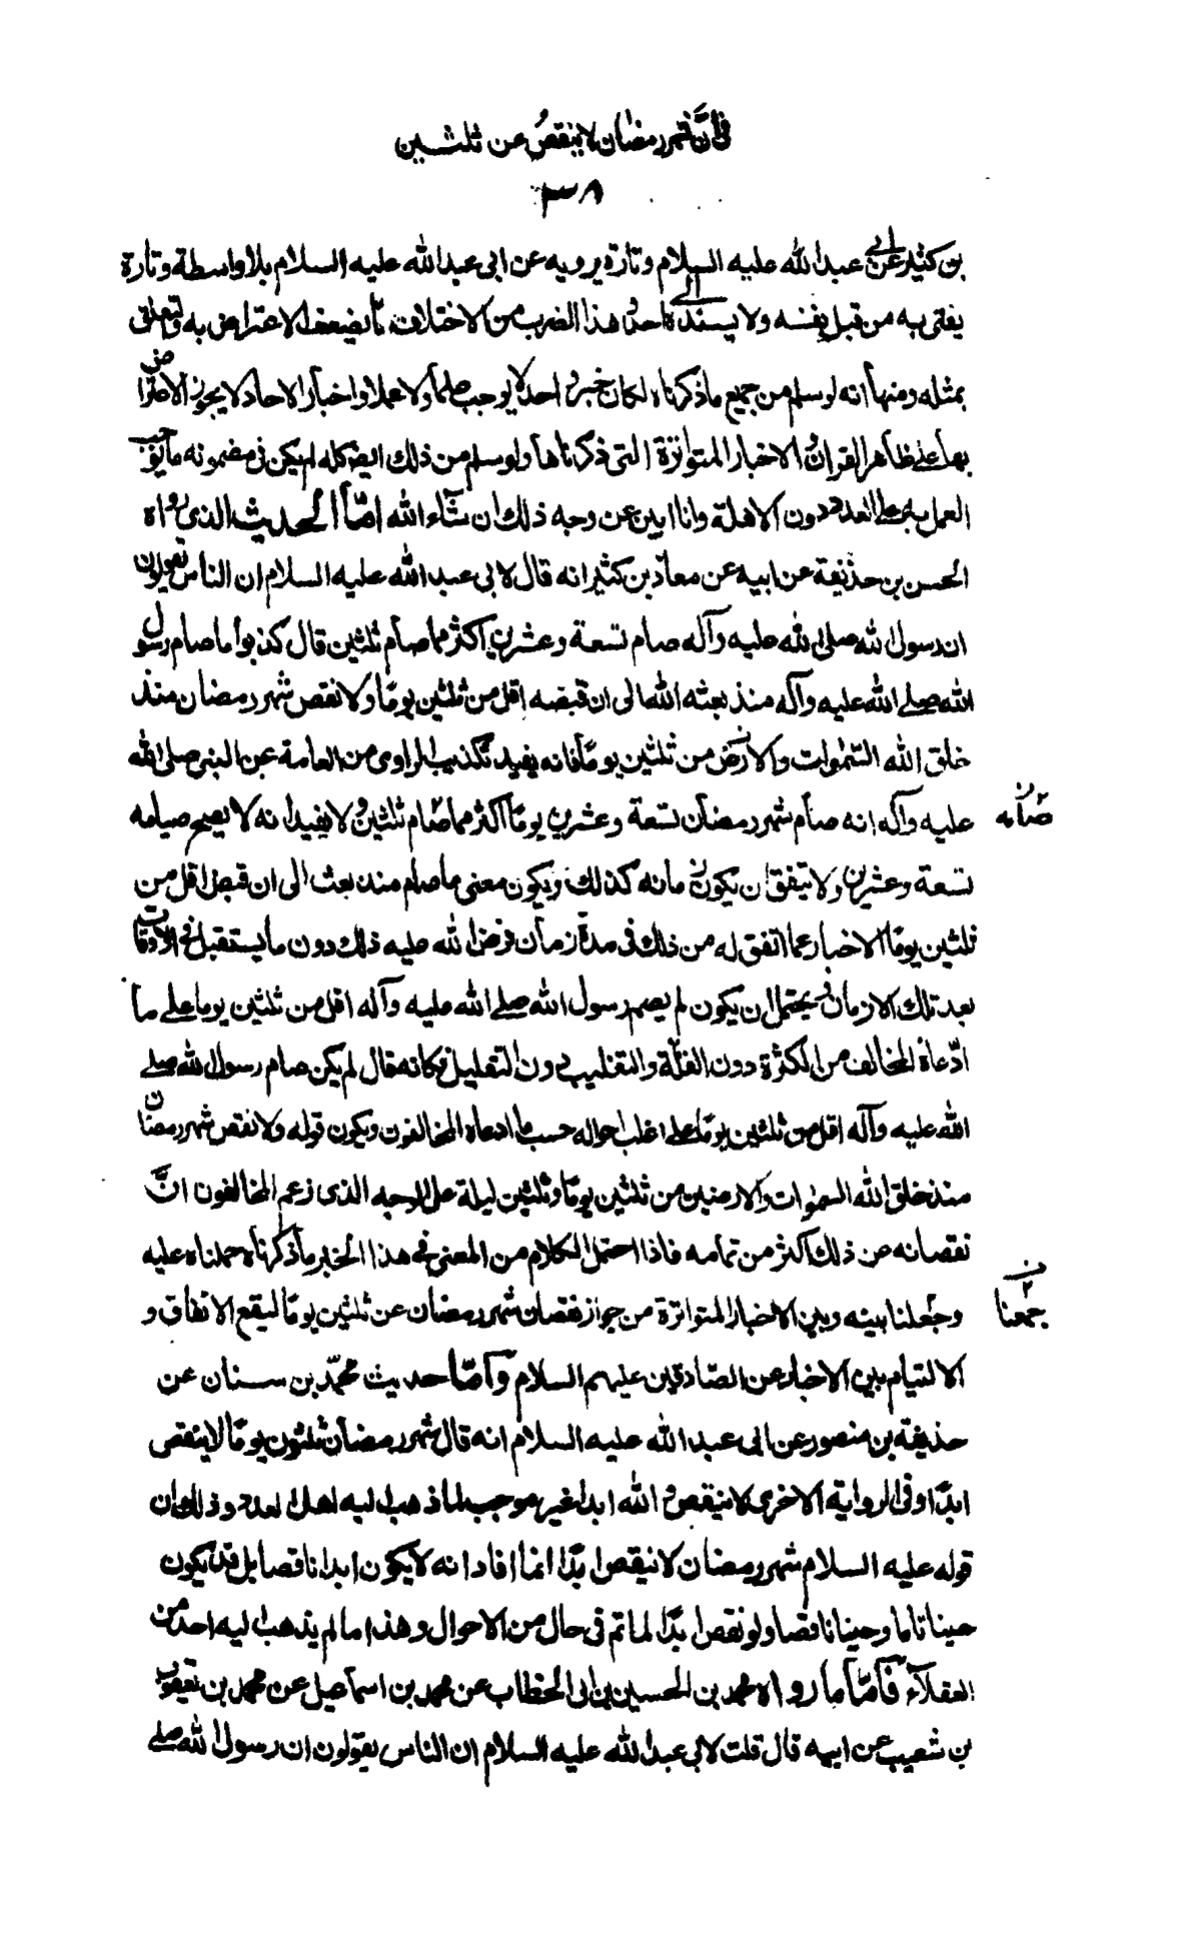 في ان شهر رمضان لا ينقص عن ثلثين
٣٨
بن كثير عن ابي عبد الله عليه السلام وتارة يرويه عن ابي عبد الله عليه السلام بلا واسطة وتارة
يفتى به من قبل نفسه ولا يسنده الى احد وهذا الضرب من الاختلاف مما يضعف الاعتراض به والتعلق
بمثله ومنها انه لو سلم من جميع ما ذكرناه لكان خبرا واحدا لا يوجب علما ولا عملا واخبار الاحاد لا يجوز الاعتراض
بها على ظاهر القران والاخبار المتواترة التي ذكرناها ولو سلم من ذلك ايضا كله لم يكن في مضمونه ما يوجب
العمل به على العدد دون الاهلة وانا ابين عن وجه ذلك ان شآء الله امّا الحديث الذي رواه
الحسن بن حذيفة عن ابيه عن معاذ بن كثير انه قال لابي عبد الله عليه السلام ان الناس يقولون
ان رسول الله صلى الله عليه وآله صام تسعة وعشرين اكثر مما صام ثلثين قال كذبوا ما صام رسول
الله صلى الله عليه وآله منذ بعثه الله الى ان قبضه اقل من ثلثين يومًا ولا نقص شهر رمضان منذ
خلق الله السّموات والارض من ثلثين يومًا فانه يفيد تكذيب الراوي من العامة عن النبي صلى الله
عليه وآله انه صام شهر رمضان تسعة وعشرين يومًا اكثر مما صام ثلثين ولا يفيد انه لا يصح صيامه
صيامه ن
تسعة وعشرين ولا يتفق ان يكون في زمانه كذلك ويكون معنى ما صام منذ بعث الى ان قبض اقل من
ثلثين يومًا الاخبار عما اتفق له من ذلك في مدة زمان فرض الله عليه ذلك دون ما يستقبل في الاوقات
بعد تلك الازمان ويحتمل ان يكون لم يصم رسول الله صلى الله عليه وآله اقل من ثلثين يوما على ما
ادّعاه المخالف من الكثرة دون القلة والتغليب دون التقليل فكانه قال لم يكن صام رسول الله صلى
الله عليه وآله اقل من ثلثين يومًا على اغلب احواله حسب ما ادعاه المخالفون ويكون قوله ولا نقص شهر رمضان
منذ خلق الله السموات والارضين من ثلثين يومًا وثلثين ليلة على الوجه الذي زعم المخالفون انَّ
نقصانه من ذلك اكثر من تمامه فاذا احتمل الكلام من المعنى في هذا الخبر ما ذكرناه حملناه عليه
وجعلنا بينه وبين الاخبار المتواترة من جواز نقصان شهر رمضان عن ثلثين يومًا ليقع الاتفاق و
جمعنا ن
الالتيام بين الاخبار عن الصّادقين عليهم السلام وامّا حديث محمّد بن سنان عن
حذيفة بن منصور عن ابي عبد الله عليه السلام انه قال شهر رمضان ثلثون يومًا لا ينقص
ابدًا وفي الرواية الاخرى لا ينقص والله ابدا غير موجب لما ذهب اليه اهل العدد وذلك ان
قوله عليه السلام شهر رمضان لا ينقص ابدًا انما افاد انه لا يكون ابدا ناقصا بل قد يكون
حينا تاما وحينا ناقصا ولو نقص ابدًا لما تم في حال من الاحوال وهذا ما لم يذهب اليه احد من
العقلآء فأمّا ما رواه محمد بن الحسين بن ابي الخطاب عن محمد بن اسماعيل عن محمد بن يعقوب
بن شعيب عن ابيه قال قلت لابي عبد الله عليه السلام ان الناس يقولون ان رسول الله صلى